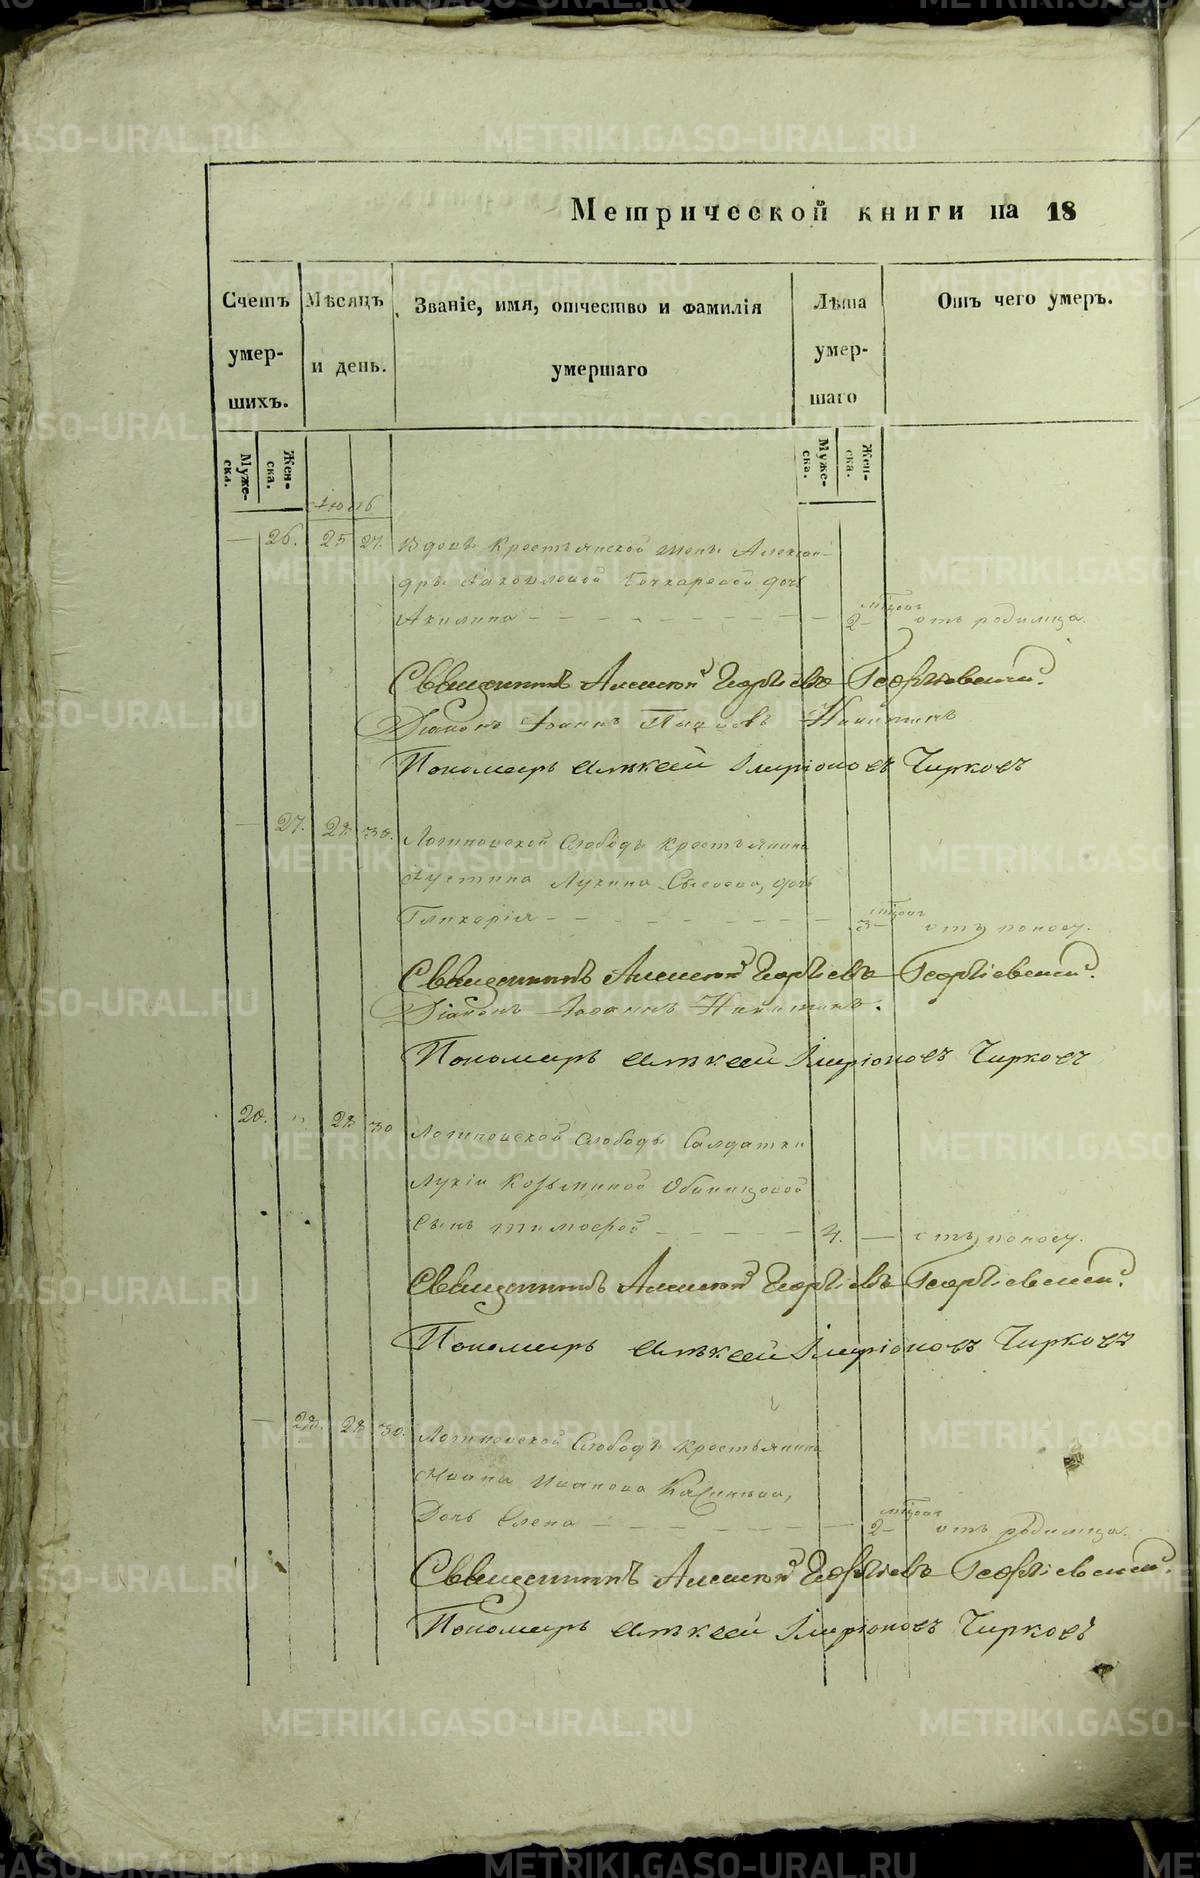 Метрической книги на 18
Счетъ умер- шихъ.
Мѣсяцъ и день.
Званіе, имя, отчество и фамилія умершаго
Лѣта умер- шаго
Отъ чего умеръ.
Муже- ска.
Жен- ска.
Муже- ска.
Жен- ска.
Июль
— 26. 25 27. Вдовы крестьянской жены Алексан-
дры Яковлевой Бочкаревой дочь
Акилина — 2 мѣсяц. отъ родимца
Священникъ Алексій Георгіевъ Георгіевскій.
Діаконъ Іоаннъ Никитинъ
Пономарь Алексей Иларіоновъ Чирковъ
— 27. 28. 30. Логиновской Слободы крестьянина
Іустина Лукина Сысоева, дочь
Гликерія — 3 мѣсяц. отъ поносу.
Священникъ Алексій Георгіевъ Георгіевскій.
Діаконъ Іоаннъ Никитинъ.
Пономарь Алексей Иларіоновъ Чирковъ
28. " 28 30 Логиновской Слободы Салдатки
Лукіи Козьминой
Сынъ Тимофей — 4. — отъ поносу.
Священникъ Алексій Георгіевъ Георгіевскій.
Пономарь Алексей Иларіоновъ Чирковъ
— 28. 28 30. Логиновской Слободы крестьянина
Ивана Иванова
Дочь Елена — 2 мѣсяц. отъ родимца.
Священникъ Алексій Георгіевъ Георгіевскій.
Пономарь Алексей Иларіоновъ Чирковъ
METRIKI.GASO-URAL.RU